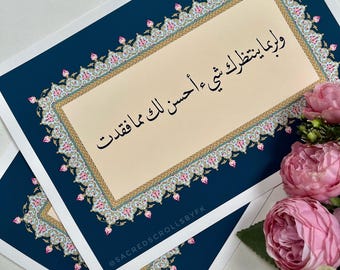 ولربما ينتظرك شيء أحسن لك مما فقدت
@SACREDSCROLLSBYFK